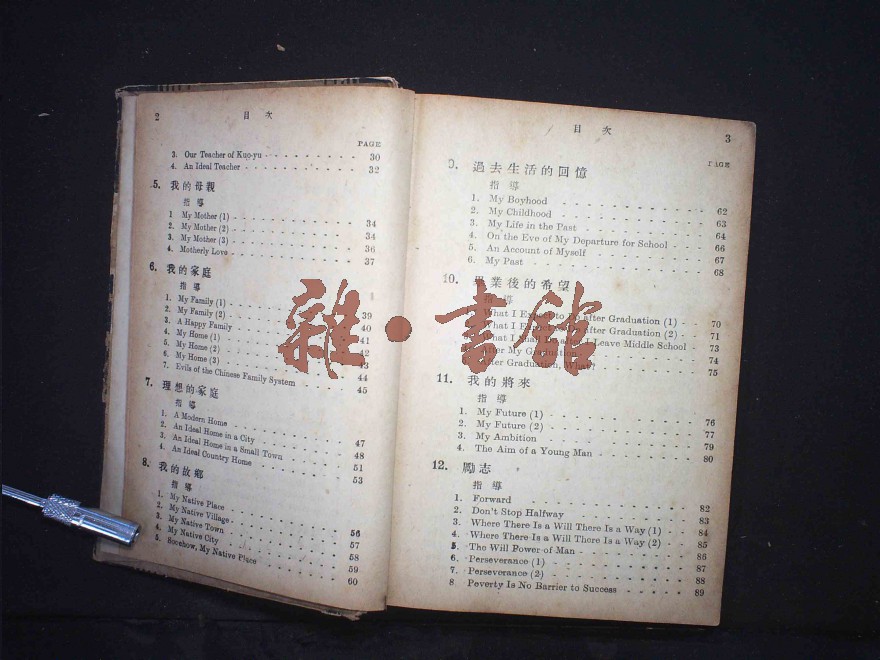 2 目次
PAGE
3. Our Teacher of Kuo-yu 30
4. An Ideal Teacher 32
5. 我的母親
指導
1 My Mother (1) 34
2. My Mother (2) 34
3. My Mother (3) 36
4. Motherly Love 37
6. 我的家庭
指導
1. My Family (1) 39
2. My Family (2) 40
3. A Happy Family 41
4. My Home (1) 42
5. My Home (2) 43
6. My Home (3) 44
7. Evils of the Chinese Family System 45
7. 理想的家庭
指導
1. A Modern Home 47
2. An Ideal Home in a City 48
3. An Ideal Home in a Small Town 51
4. An Ideal Country Home 53
8. 我的故鄉
指導
1. My Native Place 56
2. My Native Village 57
3. My Native Town 58
4. My Native City 59
5. Soochow, My Native Place 60
目次 3
PAGE
9. 過去生活的回憶
指導
1. My Boyhood 62
2. My Childhood 63
3. My Life in the Past 64
4. On the Eve of My Departure for School 66
5. An Account of Myself 67
6. My Past 68
10. 畢業後的希望
指導
What I Expect to Do after Graduation (1) 70
What I Expect to Do after Graduation (2) 71
What I Shall Do When I Leave Middle School 73
After My Graduation 74
After Graduation, What? 75
11. 我的將來
指導
1. My Future (1) 76
2. My Future (2) 77
3. My Ambition 79
4. The Aim of a Young Man 80
12. 勵志
指導
1. Forward 82
2. Don't Stop Halfway 83
3. Where There Is a Will There Is a Way (1) 84
4. Where There Is a Will There Is a Way (2) 85
5. The Will Power of Man 86
6. Perseverance (1) 87
7. Perseverance (2) 88
8 Poverty Is No Barrier to Success 89
雜•書鋪